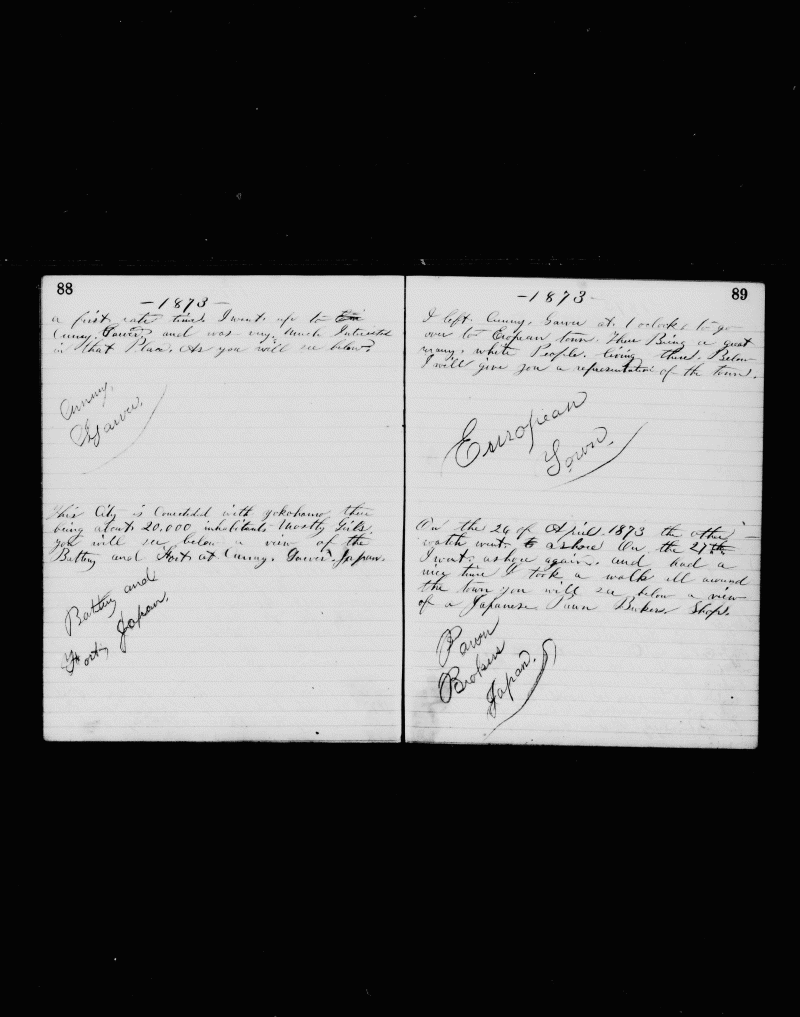 88
-1873-
a first rate time. I went up to
Cunny, Gawer and was very, Much Interested
in that Place. As you will see below.
Cunny,
Gawer.
This City is Conected with yokohama, thee
being about 20,000 inhabitants Mostly Girls.
you will see below a view of the
Battery and Fort at Cunny, Gawer. Japan.
Battery and
Fort, Japan.
89
-1873-
I left Cunny, Gawer at. 1 oclock to go
over to Eropean town. Thee Being a great
many, white People. living there. Below
I will give you a representation of the town.
Eurropean
Town.
On the 26 of April. 1873 the other
watch went to ashore On the 27th
I went ashore again. and had a
nice time I took a walk all around
the town you will see below a view
of a Japanese Pawn Brokers Shop.
Pawn
Brokers
Japan.